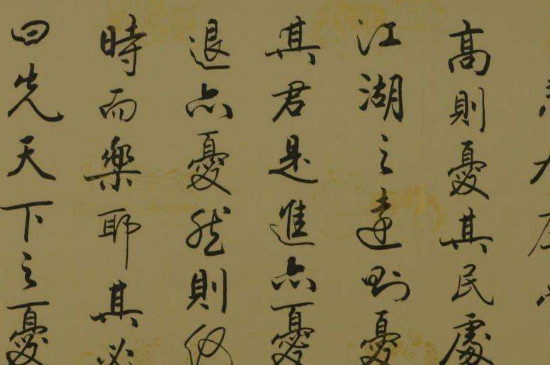 高則憂其民處
江湖之遠則憂
其君是進亦憂
退亦憂然則何
時而樂耶其必
曰先天下之憂